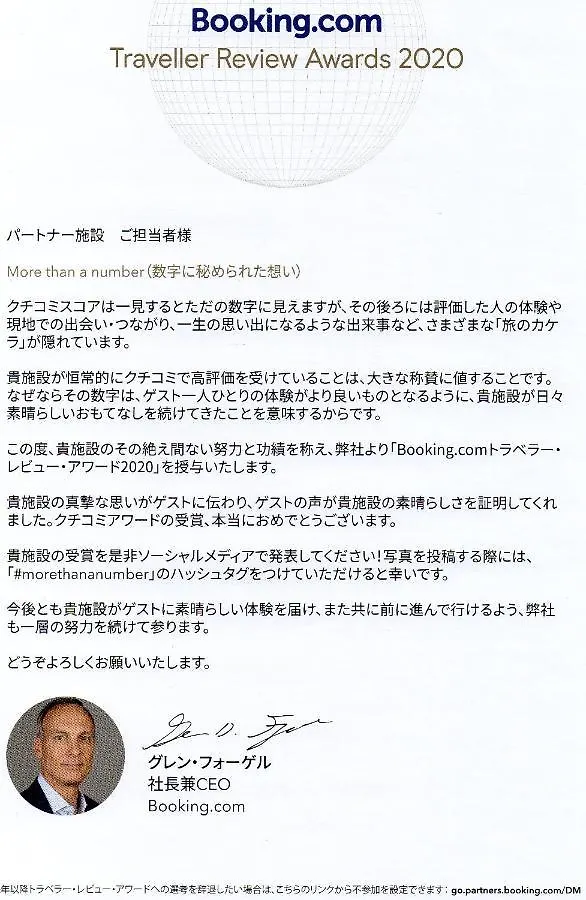 Booking.com
Traveller Review Awards 2020
パートナー施設　ご担当者様
More than a number（数字に秘められた想い）
クチコミスコアは一見するとただの数字に見えますが、その後ろには評価した人の体験や
現地での出会い・つながり、一生の思い出になるような出来事など、さまざまな「旅のカケ
ラ」が隠れています。
貴施設が恒常的にクチコミで高評価を受けていることは、大きな称賛に値することです。
なぜならその数字は、ゲスト一人ひとりの体験がより良いものとなるように、貴施設が日々
素晴らしいおもてなしを続けてきたことを意味するからです。
この度、貴施設のその絶え間ない努力と功績を称え、弊社より「Booking.comトラベラー・
レビュー・アワード2020」を授与いたします。
貴施設の真摯な思いがゲストに伝わり、ゲストの声が貴施設の素晴らしさを証明してくれ
ました。クチコミアワードの受賞、本当におめでとうございます。
貴施設の受賞を是非ソーシャルメディアで発表してください！写真を投稿する際には、
「#morethananumber」のハッシュタグをつけていただけると幸いです。
今後とも貴施設がゲストに素晴らしい体験を届け、また共に前に進んで行けるよう、弊社
も一層の努力を続けて参ります。
どうぞよろしくお願いいたします。
グレン・フォーゲル
社長兼CEO
Booking.com
年以降トラベラー・レビュー・アワードへの選考を辞退したい場合は、こちらのリンクから不参加を設定できます： go.partners.booking.com/DM